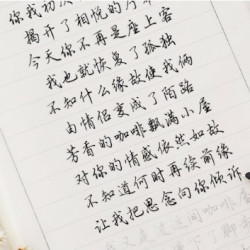 你我初次
揭开了相悦的序幕
今天你不再是座上客
我也就恢复了孤独
不知什么缘故使我俩
由情侣变成了陌路
芳香的咖啡飘满小屋
对你的情感依然如故
不知道何时再续前缘
让我把思念向你倾诉